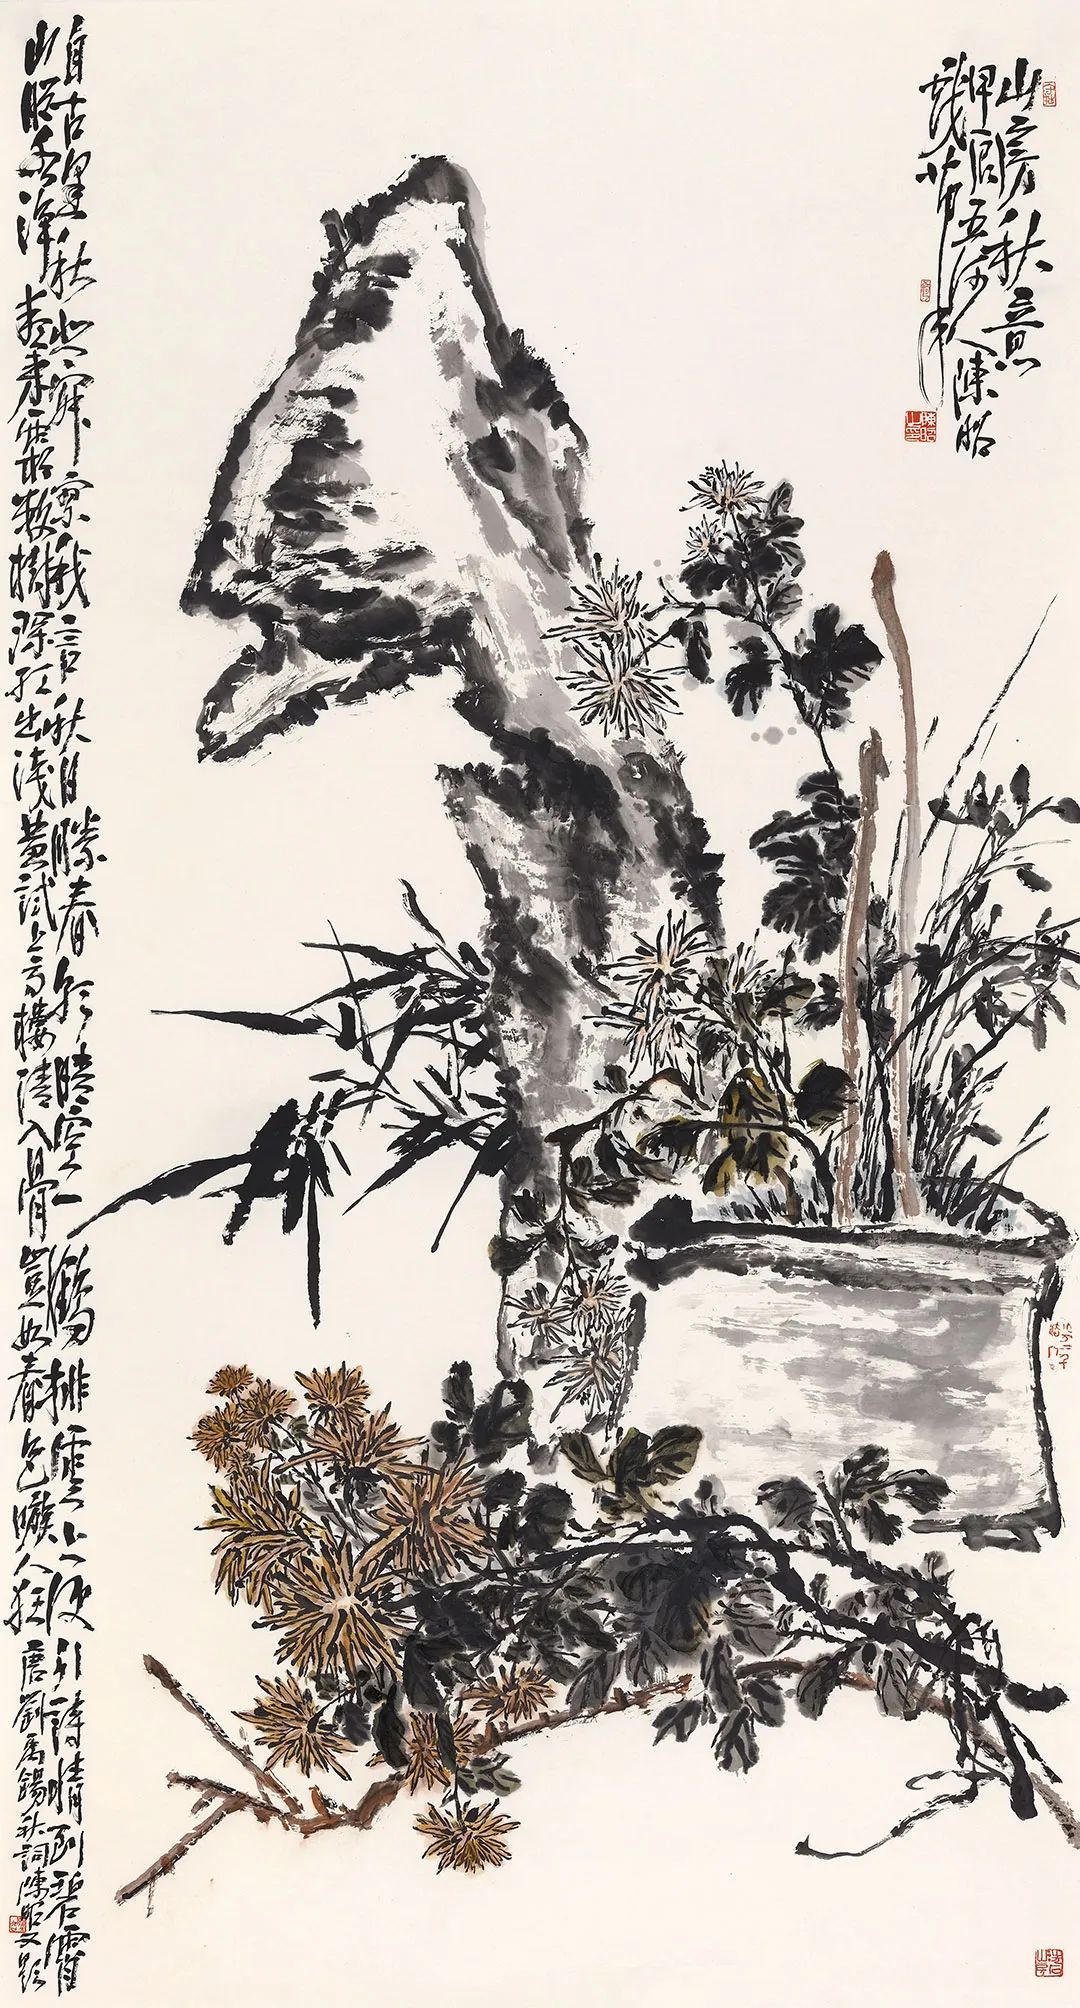 山房秋意
甲辰五河人陳昭
戲筆
陳昭之印
自古逢秋悲寂寥我言秋日勝春朝晴空一鶴排雲上便引詩情到碧霄
山明水淨夜來霜數樹深紅出淺黃試上高樓清入骨豈如春色嗾人狂 唐劉禹錫秋詞陳昭又題